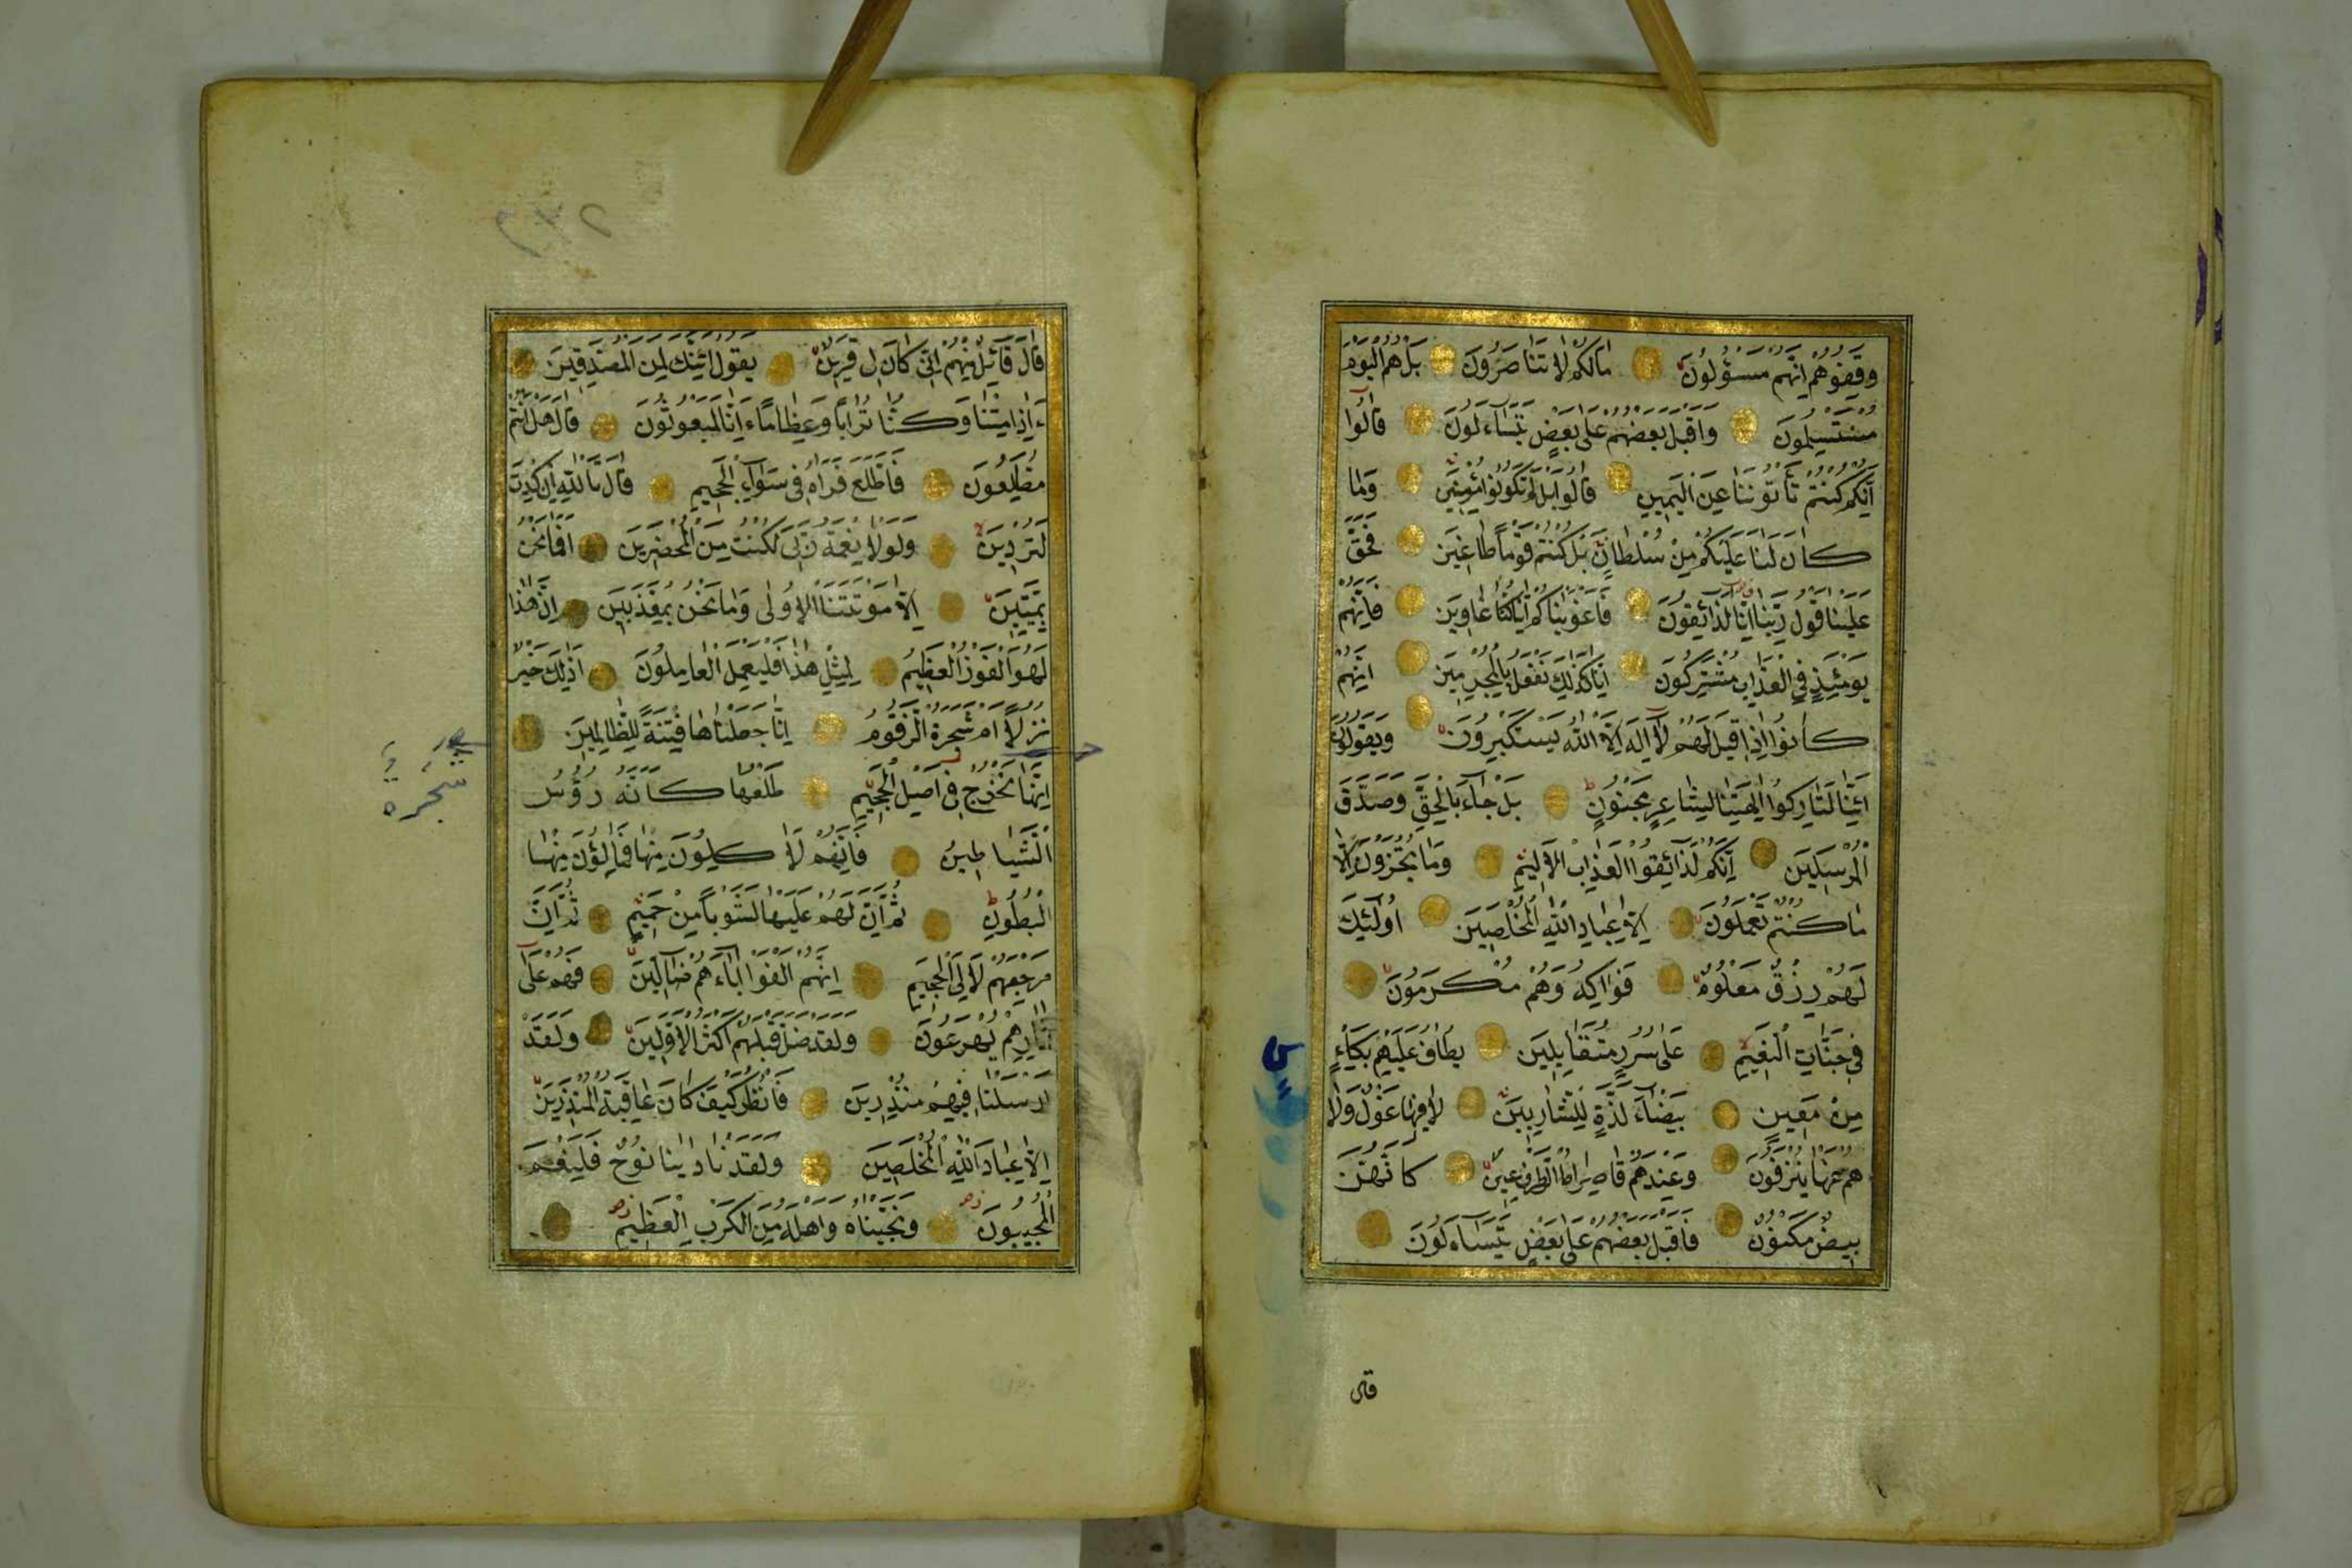 وَقِفُوهُمْ اِنَّهُمْ مَسْؤُلُونَ مَالَكُمْ لَا تَنَاصَرُونَ بَلْ هُمُ الْيَوْمَ
مُسْتَسْلِمُونَ وَاَقْبَلَ بَعْضُهُمْ عَلٰى بَعْضٍ يَتَسَاءَلُونَ قَالُوا
اِنَّكُمْ كُنْتُمْ تَأْتُونَنَا عَنِ الْيَمِينِ قَالُوا بَلْ لَمْ تَكُونُوا مُؤْمِنِينَ وَمَا
كَانَ لَنَا عَلَيْكُمْ مِنْ سُلْطَانٍ بَلْ كُنْتُمْ قَوْمًا طَاغِينَ فَحَقَّ
عَلَيْنَا قَوْلُ رَبِّنَا اِنَّا لَذَائِقُونَ فَاَغْوَيْنَاكُمْ اِنَّا كُنَّا غَاوِينَ فَاِنَّهُمْ
يَوْمَئِذٍ فِي الْعَذَابِ مُشْتَرِكُونَ اِنَّا كَذٰلِكَ نَفْعَلُ بِالْمُجْرِمِينَ اِنَّهُمْ
كَانُوا اِذَا قِيلَ لَهُمْ لَا اِلٰهَ اِلَّا اللّٰهُ يَسْتَكْبِرُونَ وَيَقُولُونَ
اَئِنَّا لَتَارِكُوا اٰلِهَتِنَا لِشَاعِرٍ مَجْنُونٍ بَلْ جَاءَ بِالْحَقِّ وَصَدَّقَ
الْمُرْسَلِينَ اِنَّكُمْ لَذَائِقُوا الْعَذَابِ الْاَلِيمِ وَمَا تُجْزَوْنَ اِلَّا
مَا كُنْتُمْ تَعْمَلُونَ اِلَّا عِبَادَ اللّٰهِ الْمُخْلَصِينَ اُولٰئِكَ
لَهُمْ رِزْقٌ مَعْلُومٌ فَوَاكِهُ وَهُمْ مُكْرَمُونَ
فِي جَنَّاتِ النَّعِيمِ عَلٰى سُرُرٍ مُتَقَابِلِينَ يُطَافُ عَلَيْهِمْ بِكَاْسٍ
مِنْ مَعِينٍ بَيْضَاءَ لَذَّةٍ لِلشَّارِبِينَ لَا فِيهَا غَوْلٌ وَلَا
هُمْ عَنْهَا يُنْزَفُونَ وَعِنْدَهُمْ قَاصِرَاتُ الطَّرْفِ عِينٌ كَاَنَّهُنَّ
بَيْضٌ مَكْنُونٌ فَاَقْبَلَ بَعْضُهُمْ عَلٰى بَعْضٍ يَتَسَاءَلُونَ
قَالَ قَائِلٌ مِنْهُمْ اِنِّي كَانَ لِي قَرِينٌ يَقُولُ اَئِنَّكَ لَمِنَ الْمُصَدِّقِينَ
ءَاِذَا مِتْنَا وَكُنَّا تُرَابًا وَعِظَامًا ءَاِنَّا لَمَبْعُوثُونَ قَالَ هَلْ اَنْتُمْ
مُطَّلِعُونَ فَاطَّلَعَ فَرَاٰهُ فِي سَوَاءِ الْجَحِيمِ قَالَ تَاللّٰهِ اِنْ كِدْتَ
لَتُرْدِينِ وَلَوْلَا نِعْمَةُ رَبِّي لَكُنْتُ مِنَ الْمُحْضَرِينَ اَفَمَا نَحْنُ
بِمَيِّتِينَ اِلَّا مَوْتَتَنَا الْاُولٰى وَمَا نَحْنُ بِمُعَذَّبِينَ اِنَّ هٰذَا
لَهُوَ الْفَوْزُ الْعَظِيمُ لِمِثْلِ هٰذَا فَلْيَعْمَلِ الْعَامِلُونَ اَذٰلِكَ خَيْرٌ
نُزُلًا اَمْ شَجَرَةُ الزَّقُّومِ اِنَّا جَعَلْنَاهَا فِتْنَةً لِلظَّالِمِينَ
اِنَّهَا تَخْرُجُ فِي اَصْلِ الْجَحِيمِ طَلْعُهَا كَاَنَّهُ رُؤُسُ
الشَّيَاطِينِ فَاِنَّهُمْ لَاٰكِلُونَ مِنْهَا فَمَالِؤُنَ مِنْهَا
الْبُطُونَ ثُمَّ اِنَّ لَهُمْ عَلَيْهَا لَشَوْبًا مِنْ حَمِيمٍ ثُمَّ اِنَّ
مَرْجِعَهُمْ لَاِلَى الْجَحِيمِ اِنَّهُمْ اَلْفَوْا اٰبَاءَهُمْ ضَالِّينَ فَهُمْ عَلٰى
اٰثَارِهِمْ يُهْرَعُونَ وَلَقَدْ ضَلَّ قَبْلَهُمْ اَكْثَرُ الْاَوَّلِينَ وَلَقَدْ
اَرْسَلْنَا فِيهِمْ مُنْذِرِينَ فَانْظُرْ كَيْفَ كَانَ عَاقِبَةُ الْمُنْذَرِينَ
اِلَّا عِبَادَ اللّٰهِ الْمُخْلَصِينَ وَلَقَدْ نَادٰينَا نُوحٌ فَلَنِعْمَ
الْمُجِيبُونَ وَنَجَّيْنَاهُ وَاَهْلَهُ مِنَ الْكَرْبِ الْعَظِيمِ
شجرة